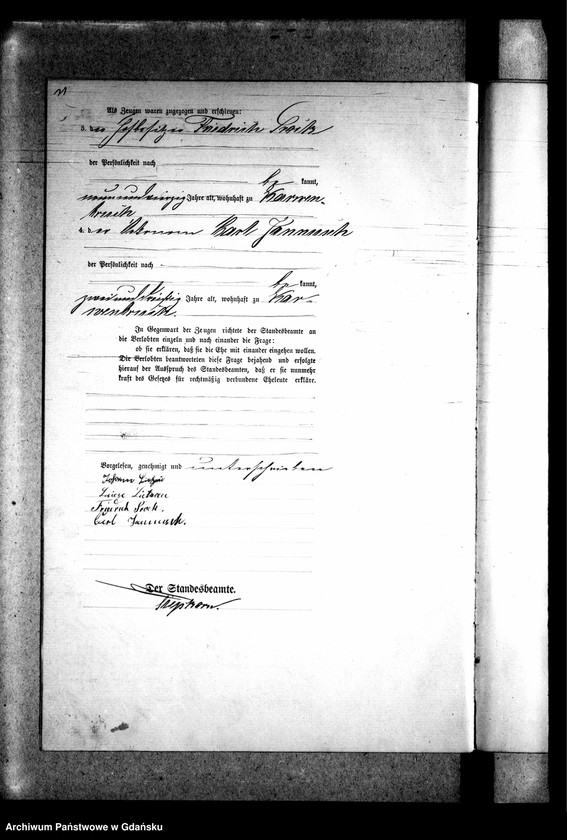 Als Zeugen waren zugezogen und erschienen:
3. der Hofbesitzer Friedrich
der Persönlichkeit nach
be kannt,
neunundvierzig Jahre alt, wohnhaft zu Karwen-
bruch
4. der Karl Jannusch
der Persönlichkeit nach
be kannt,
zweiunddreißig Jahre alt, wohnhaft zu Kar-
wenbruch.
In Gegenwart der Zeugen richtete der Standesbeamte an
die Verlobten einzeln und nach einander die Frage:
ob sie erklären, daß sie die Ehe mit einander eingehen wollen.
Die Verlobten beantworteten diese Frage bejahend und erfolgte
hierauf der Ausspruch des Standesbeamten, daß er sie nunmehr
kraft des Gesetzes für rechtmäßig verbundene Eheleute erkläre.
Vorgelesen, genehmigt und unterschrieben
Johann
Luise
Friedrich
Carl Jannusch.
Der Standesbeamte.
Archiwum Państwowe w Gdańsku